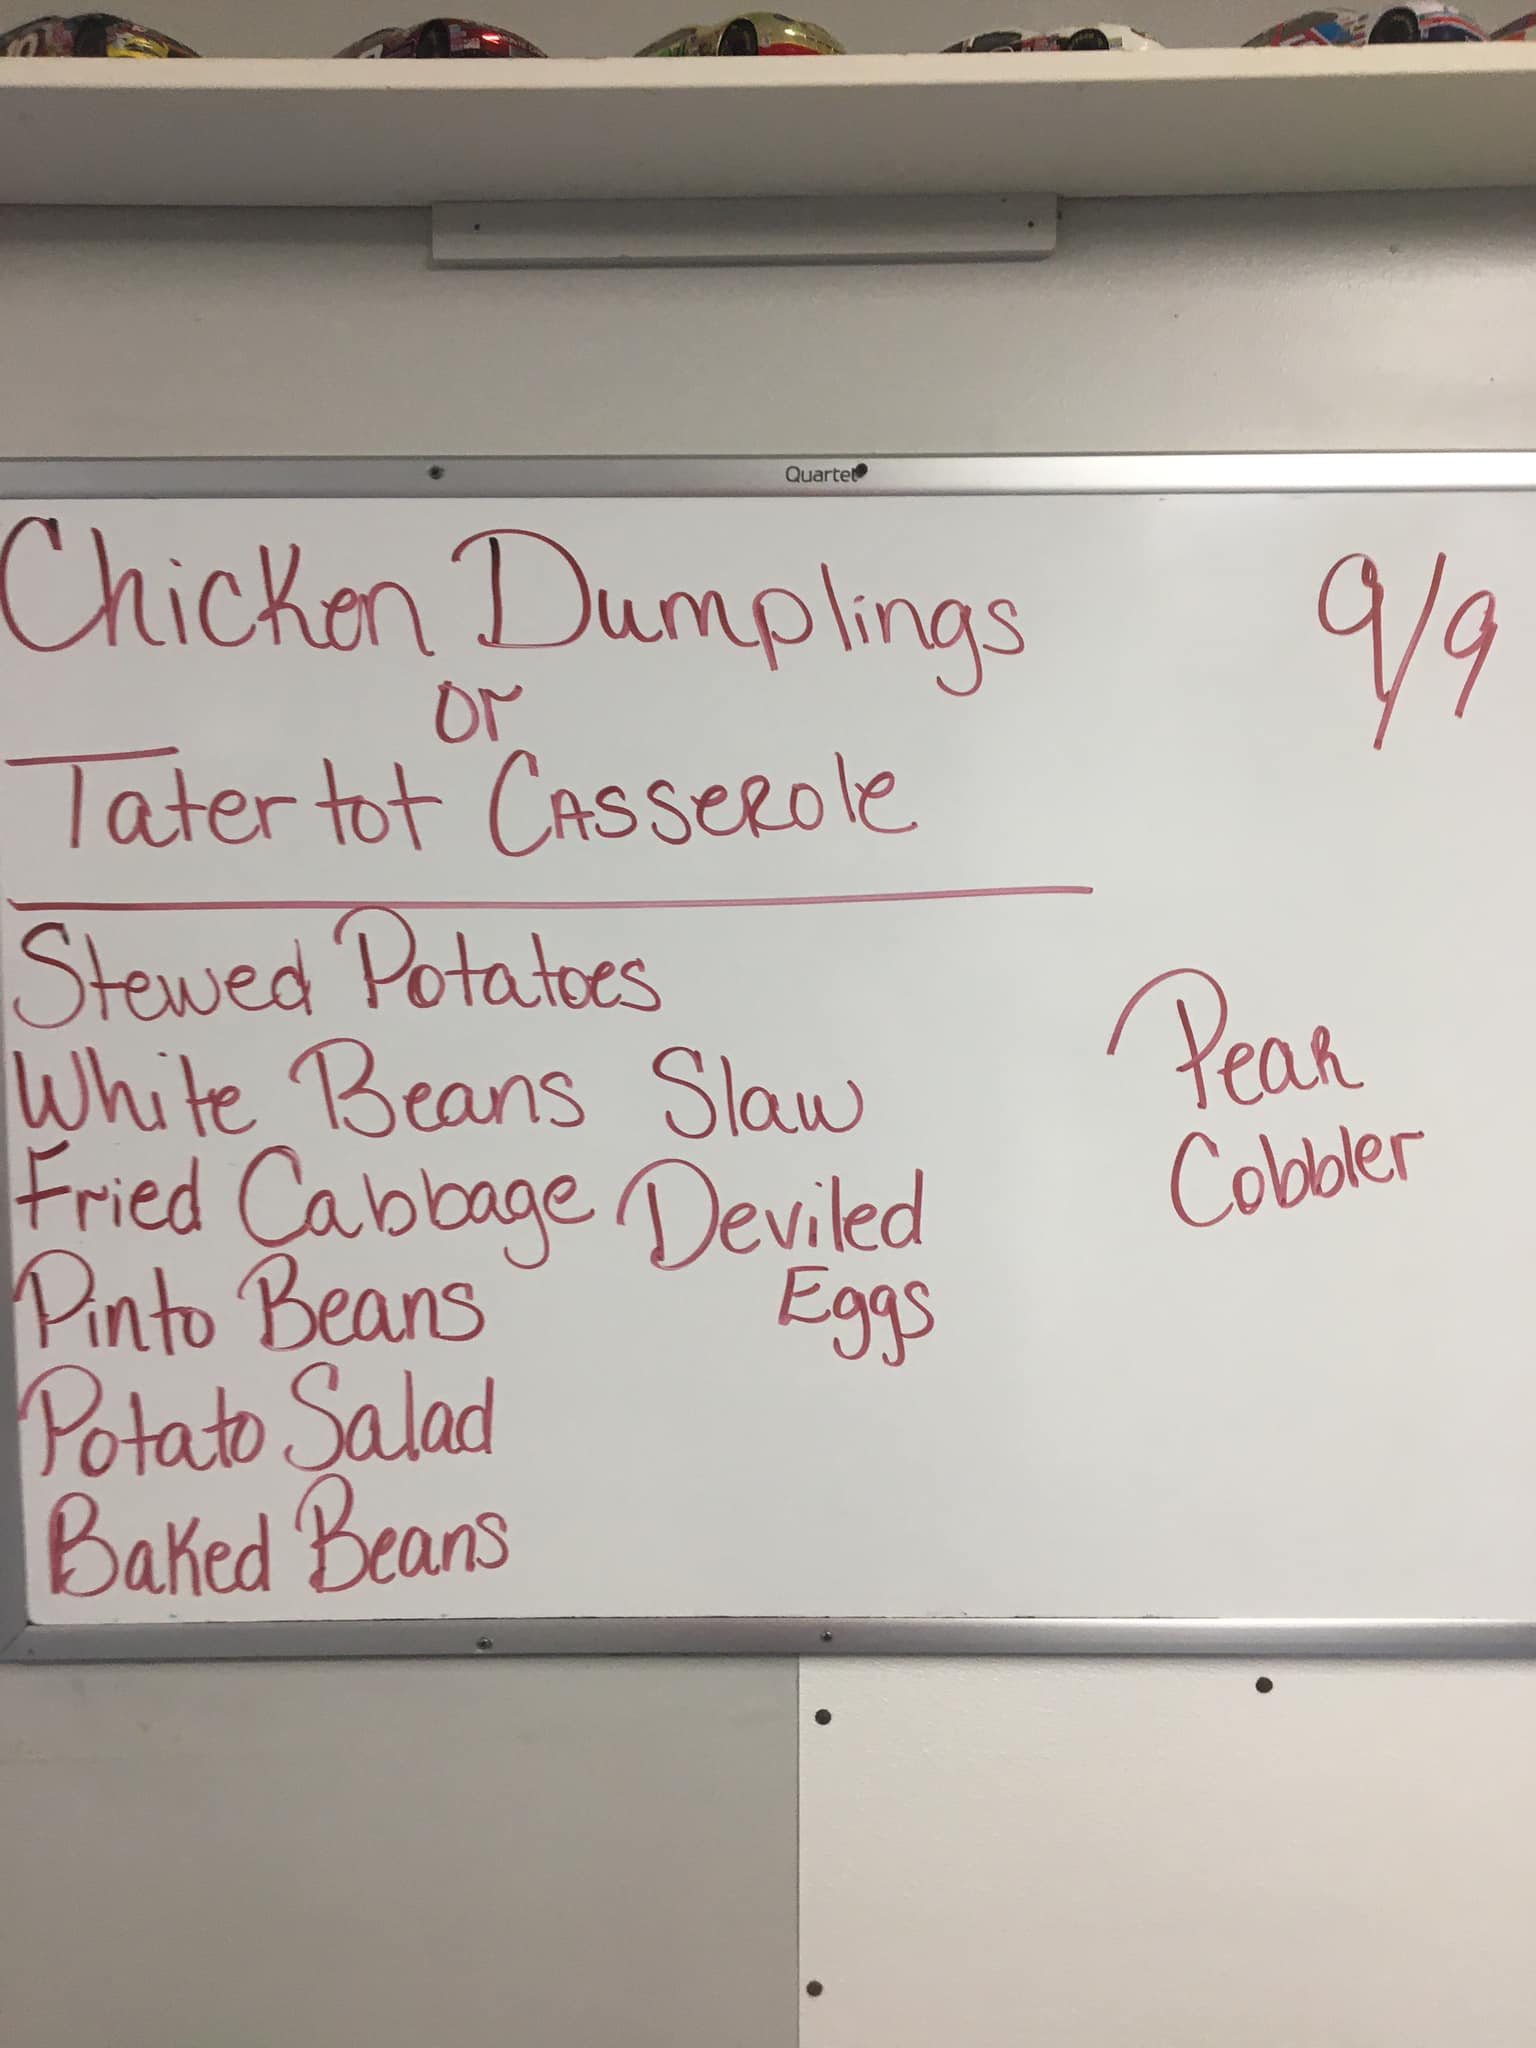 Quartet
Chicken Dumplings
9/9
or
Tater tot Casserole
Stewed Potatoes
White Beans Slaw
Fried Cabbage Deviled
Eggs
Pinto Beans
Potato Salad
Baked Beans
Pear
Cobbler